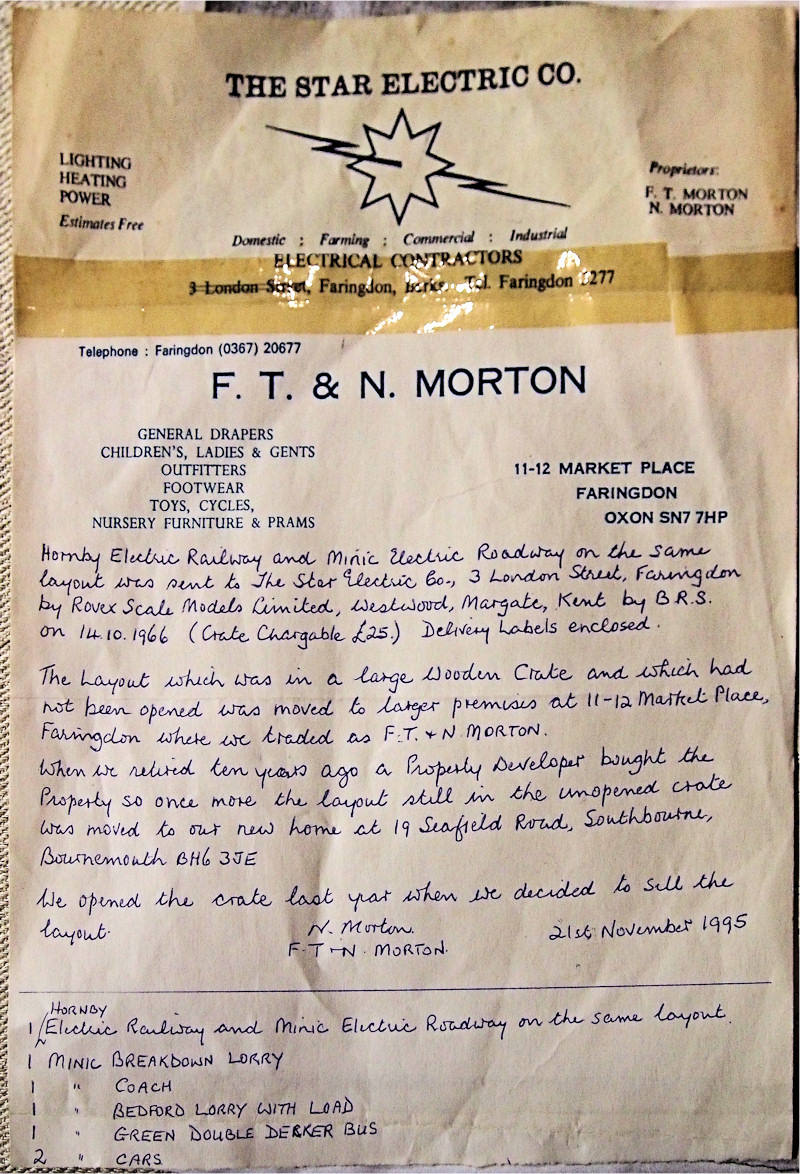 THE STAR ELECTRIC CO.
LIGHTING
HEATING
POWER
Estimates Free
Proprietors:
F. T. MORTON
N. MORTON
Domestic : Farming : Commercial : Industrial
ELECTRICAL CONTRACTORS
3 London Street, Faringdon, Berks. Tel. Faringdon 2277
Telephone : Faringdon (0367) 20677
F. T. & N. MORTON
GENERAL DRAPERS
CHILDREN'S, LADIES & GENTS
OUTFITTERS
FOOTWEAR
TOYS, CYCLES,
NURSERY FURNITURE & PRAMS
11-12 MARKET PLACE
FARINGDON
OXON SN7 7HP
Hornby Electric Railway and Minic Electric Roadway on the same
layout was sent to The Star Electric Co., 3 London Street, Faringdon
by Rovex Scale Models Limited, Westwood, Margate, Kent by B.R.S.
on 14.10.1966 (Crate Chargable £25.) Delivery Labels enclosed.
The Layout which was in a large Wooden Crate and which had
not been opened was moved to larger premises at 11-12 Market Place,
Faringdon where we traded as F.T. & N MORTON.
When we retired ten years ago a Property Developer bought the
Property so once more the layout still in the unopened crate
was moved to our new home at 19 Seafield Road, Southbourne,
Bournemouth BH6 3JE
We opened the crate last year when we decided to sell the
layout.
N. Morton.
F.T & N. MORTON.
21st November 1995
HORNBY
1 Electric Railway and Minic Electric Roadway on the same layout.
1 MINIC BREAKDOWN LORRY
1 " COACH
1 " BEDFORD LORRY WITH LOAD
1 " GREEN DOUBLE DEKKER BUS
2 " CARS